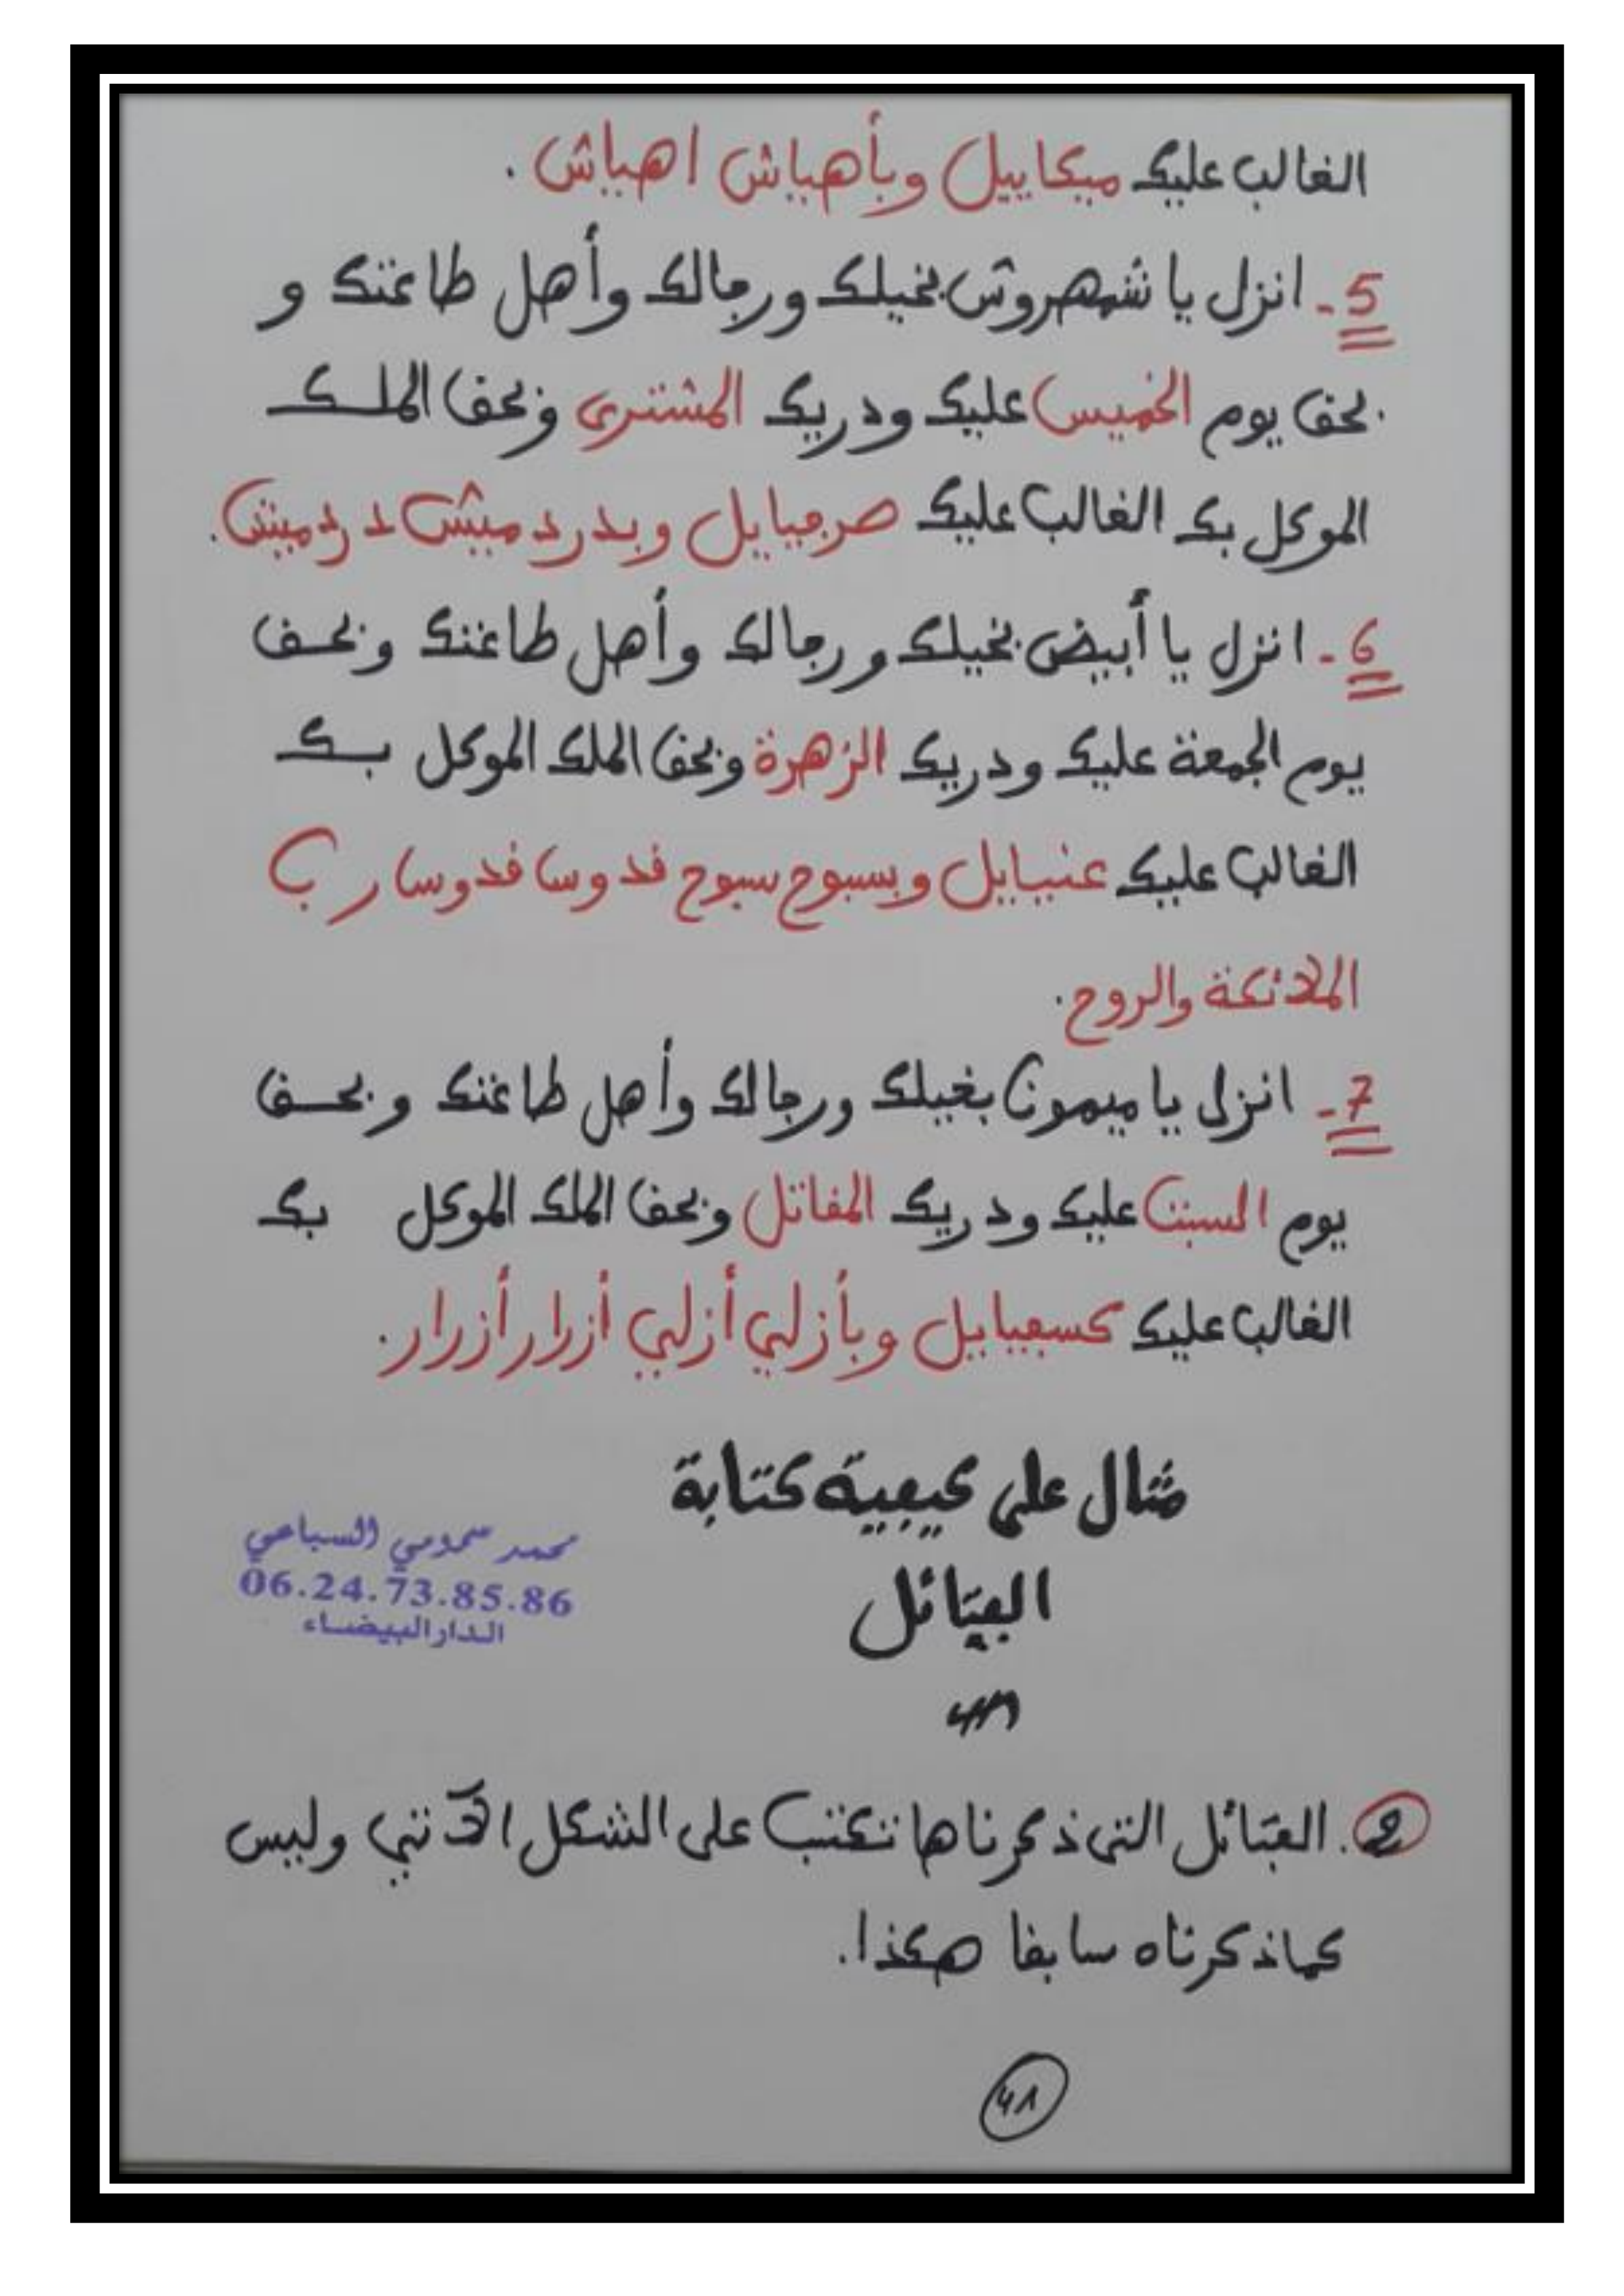 الغالب عليك ميكاييل وبأهياش اهياش.
5- انزل يا شمهروش بخيلك ورجالك وأهل طاعتك و
بحق يوم الخميس عليك ودريك المشترى وبحق الملك
الموكل بك الغالب عليك صرفيايل وبدردميش دردميش.
6- انزل يا أبيض بخيلك ورجالك وأهل طاعتك وبحق
يوم الجمعة عليك ودريك الزهرة وبحق الملك الموكل بك
الغالب عليك عنيايل وبسبوح سبوح قدوسا قدوسا رب
الملائكة والروح.
7- انزل يا ميمون بخيلك ورجالك وأهل طاعتك وبحق
يوم السبت عليك ودريك المقاتل وبحق الملك الموكل بك
الغالب عليك كسفيايل وبأزلي أزلي أزرار أزرار.
مثال على كيفية كتابة
الفتائل
محمد سمومي السباعي
06.24.73.85.86
الدار البيضاء
2. الفتائل التى ذكرناها تكتب على الشكل الآتي وليس
كما ذكرناه سابقا هكذا.
41